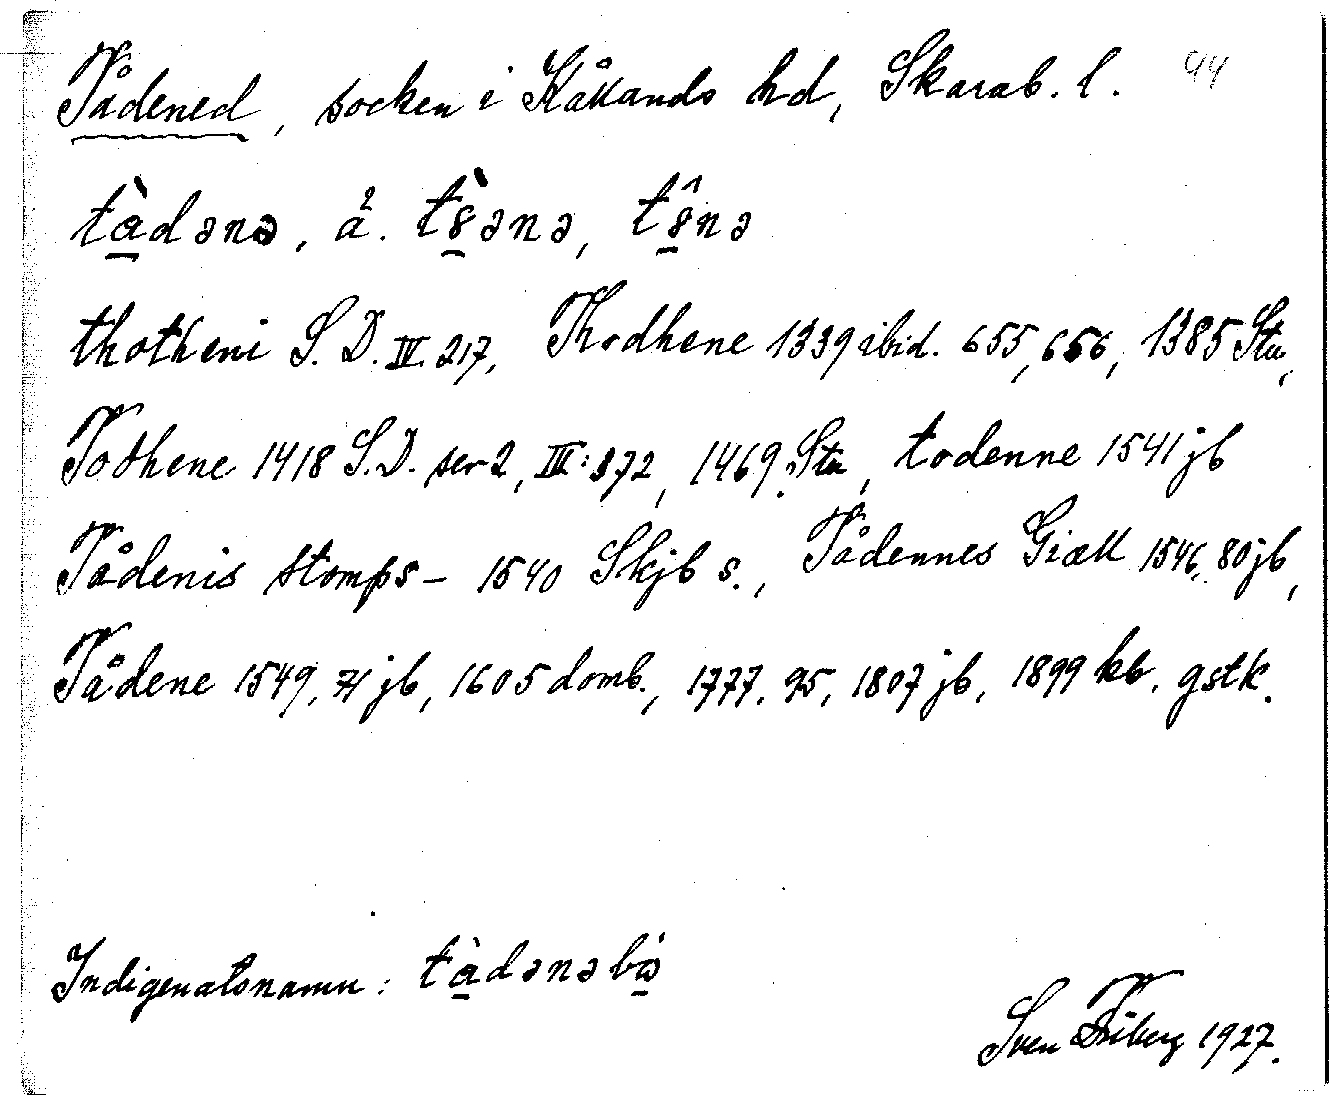 Tådened, socken i Kållands hd, Skarab. l. 94
tàdənə, ä. tòənə, tônə
thotheni S. D. IV. 217, Thodhene 1339 ibid. 655, 656, 1385 Sta,
Tothene 1418 S.D. ser 2, III: 372, 1469 Sta, todenne 1541 jb
Tådenis stomps – 1540 Skjb s., Tådennes Giæll 1546, 80 jb,
Tådene 1549, 71 jb, 1605 domb., 1777. 95, 1807 jb, 1899 kb. gstk.
Indigenatsnamn: tàdənəbo
Sven Friberg 1927.